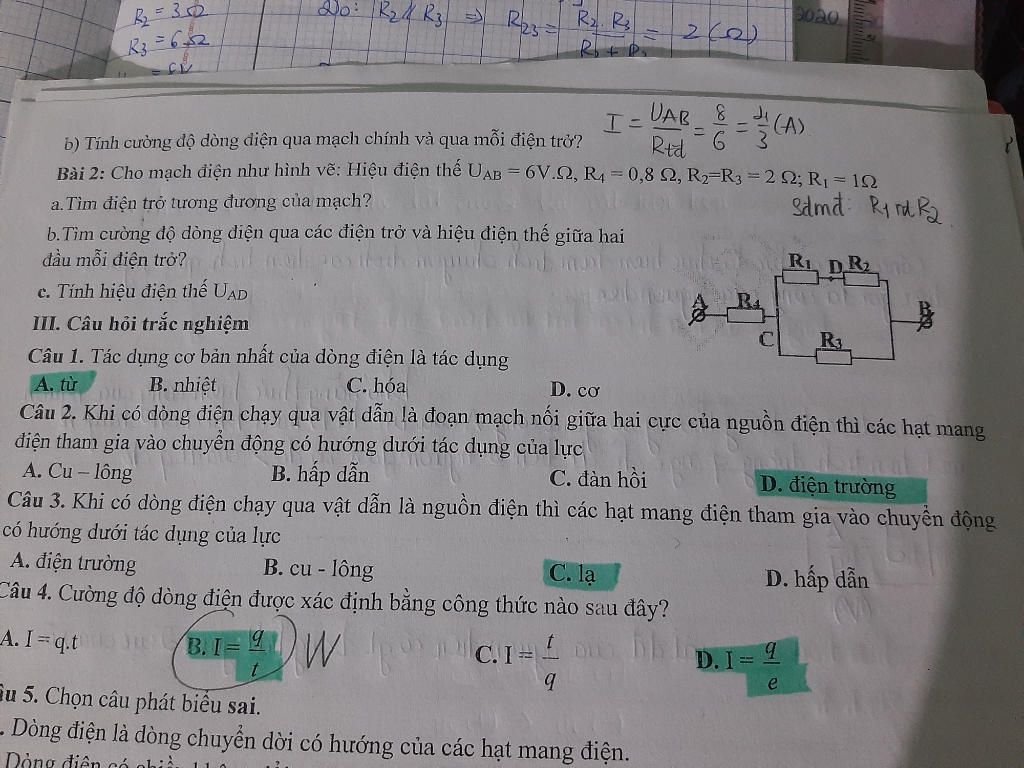 R₂ = 3Ω
R₃ = 6Ω
R₂ // R₃ ⇒ R₂₃ = R₂ . R₃ / = 2 (Ω)
2020
b) Tính cường độ dòng điện qua mạch chính và qua mỗi điện trở?
I = U_AB / R_tđ = 8/6 = 4/3 (A)
Bài 2: Cho mạch điện như hình vẽ: Hiệu điện thế U_AB = 6V.Ω, R₄ = 0,8 Ω, R₂=R₃ = 2 Ω; R₁ = 1Ω
a.Tìm điện trở tương đương của mạch?
Sđmđ: R₁ nt R₂
b.Tìm cường độ dòng điện qua các điện trở và hiệu điện thế giữa hai
đầu mỗi điện trở?
R₁ D R₂
c. Tính hiệu điện thế U_AD
A R₄ B
C R₃
III. Câu hỏi trắc nghiệm
Câu 1. Tác dụng cơ bản nhất của dòng điện là tác dụng
A. từ B. nhiệt C. hóa D. cơ
Câu 2. Khi có dòng điện chạy qua vật dẫn là đoạn mạch nối giữa hai cực của nguồn điện thì các hạt mang
điện tham gia vào chuyển động có hướng dưới tác dụng của lực
A. Cu – lông B. hấp dẫn C. đàn hồi D. điện trường
Câu 3. Khi có dòng điện chạy qua vật dẫn là nguồn điện thì các hạt mang điện tham gia vào chuyển động
có hướng dưới tác dụng của lực
A. điện trường B. cu - lông C. lạ D. hấp dẫn
Câu 4. Cường độ dòng điện được xác định bằng công thức nào sau đây?
A. I = q.t B. I = q/t C. I = t/q D. I = q/e
âu 5. Chọn câu phát biểu sai.
. Dòng điện là dòng chuyển dời có hướng của các hạt mang điện.
Dòng điện có